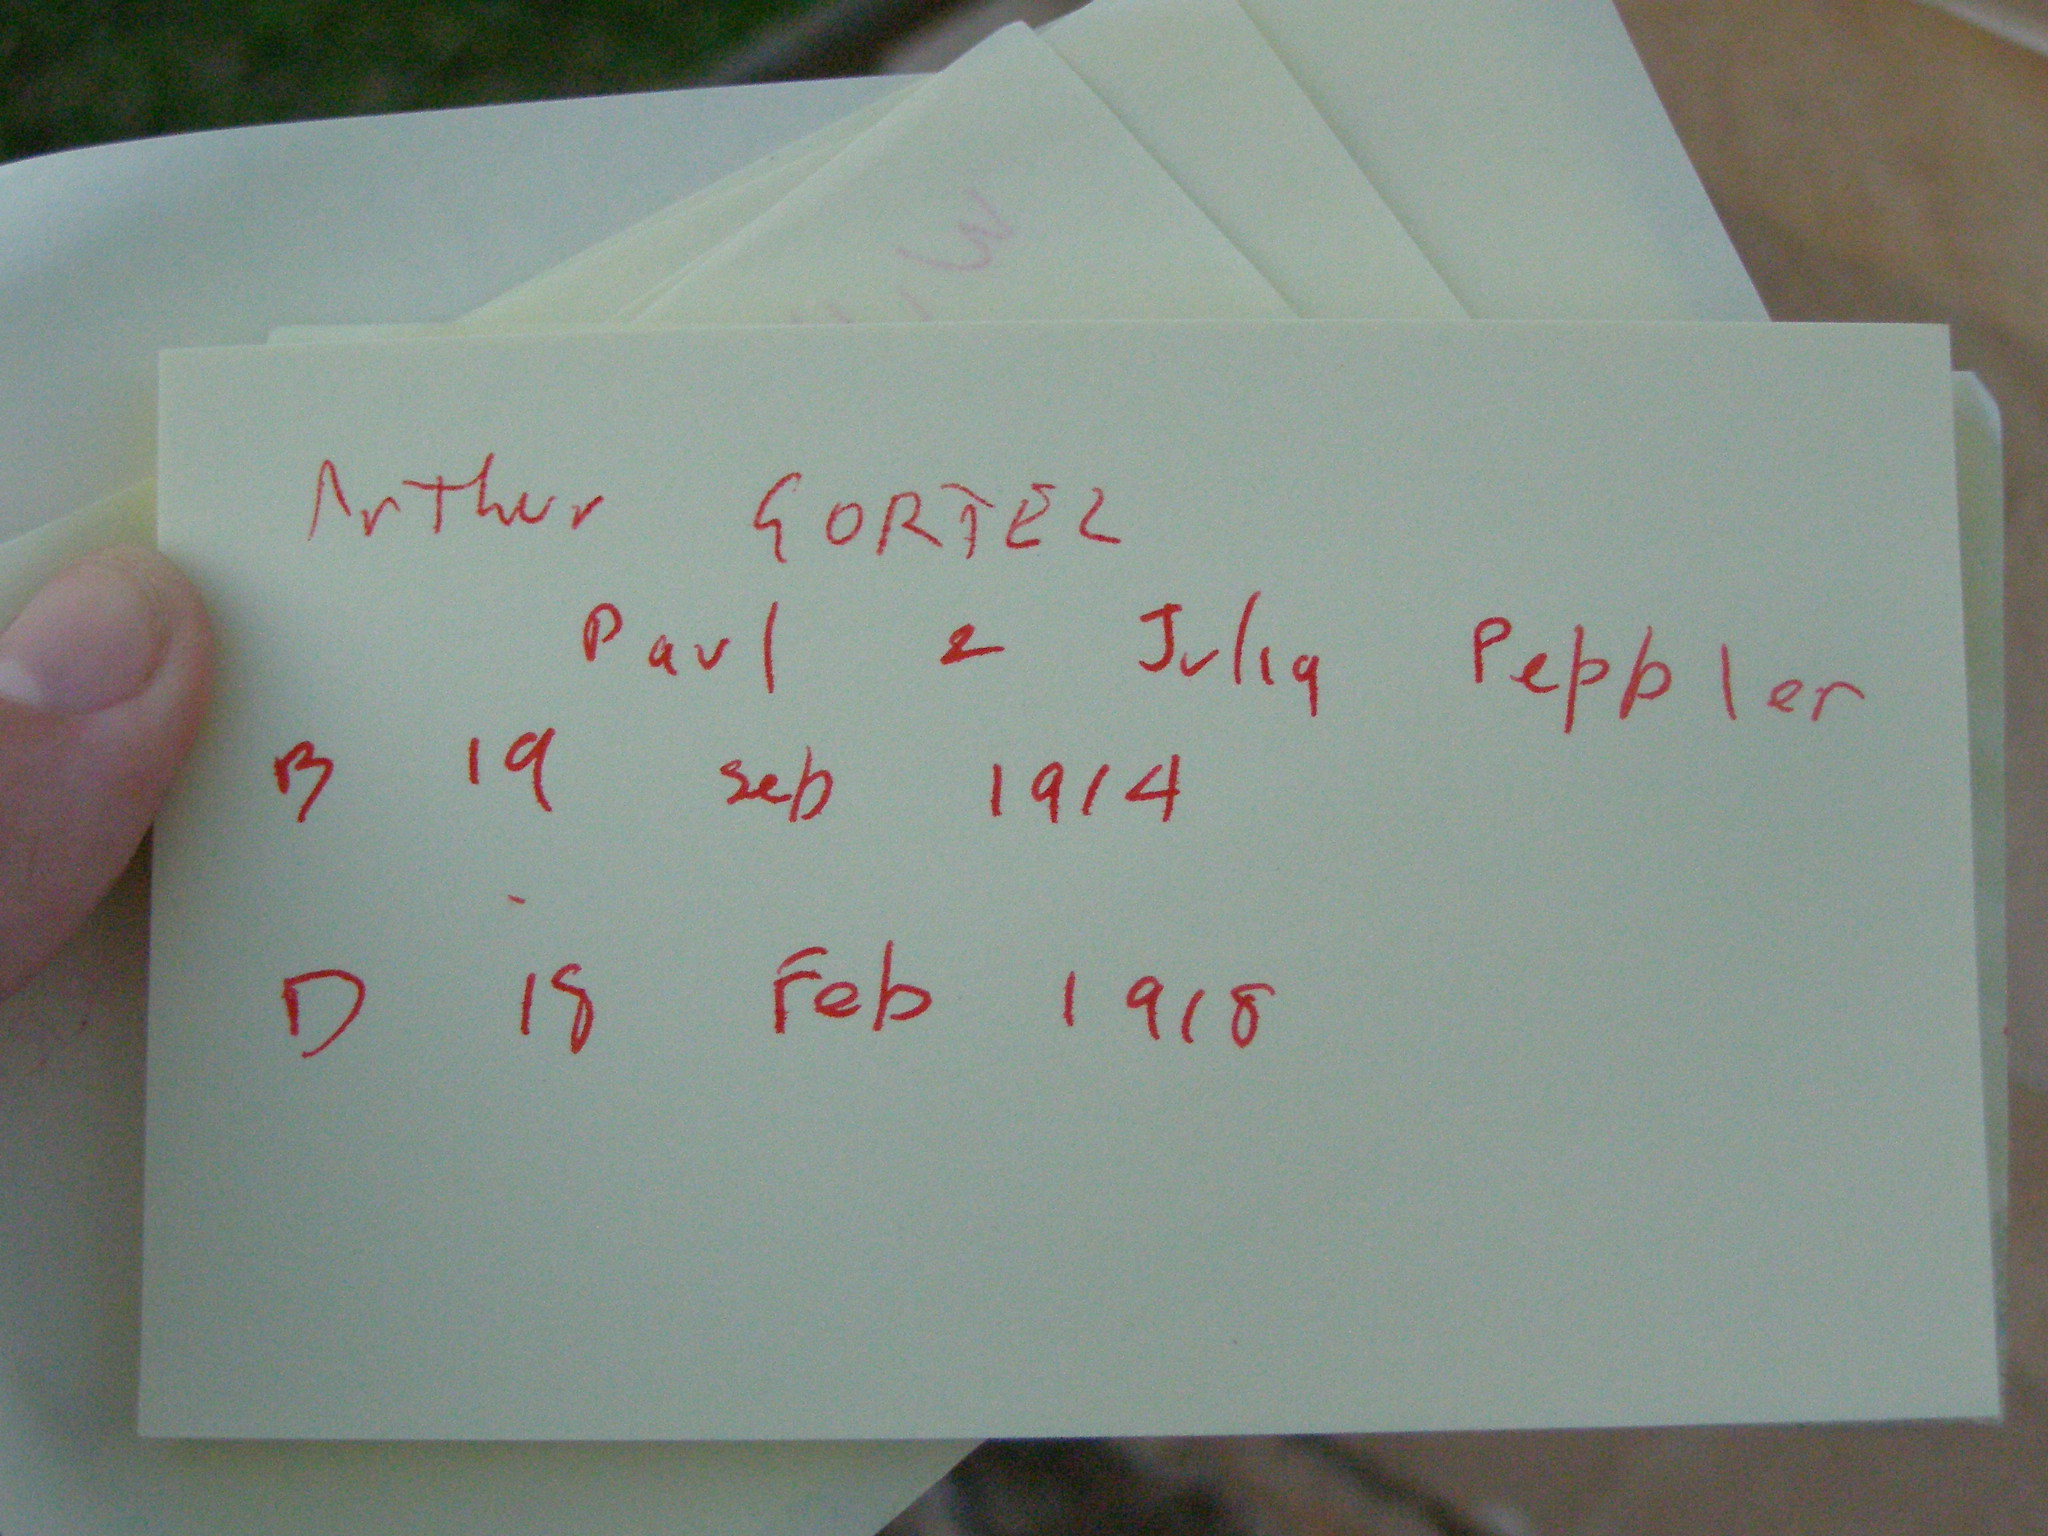 Arthur GORTEZ
Paul & Julia Pepbler
B 19 seb 1914
D 18 Feb 1918